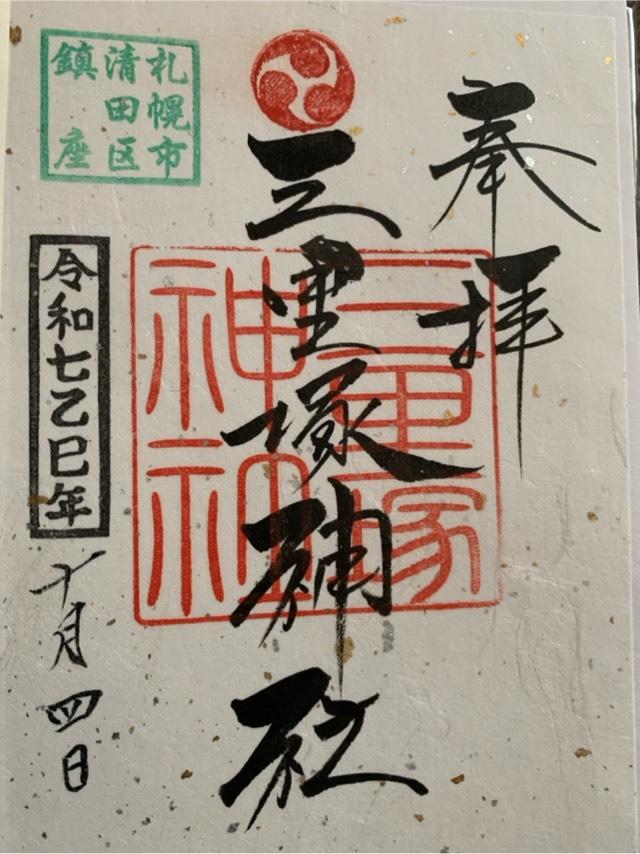 奉拝
三里塚神社
三里塚神社
札幌市
清田区
鎮座
令和七乙巳年
十月四日